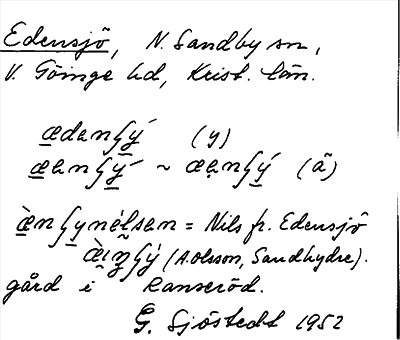 Edensjö, N. Sandby sn,
V. Göinge hd, Krist. län.
ædənʃý (y)
æənʃý ~ æənʃý (ä)
æ̀nʃynélsen = Nils fr. Edensjö
(A. Olsson, Sandhydre).
gård i Ranseröd.
G. Sjöstedt 1952